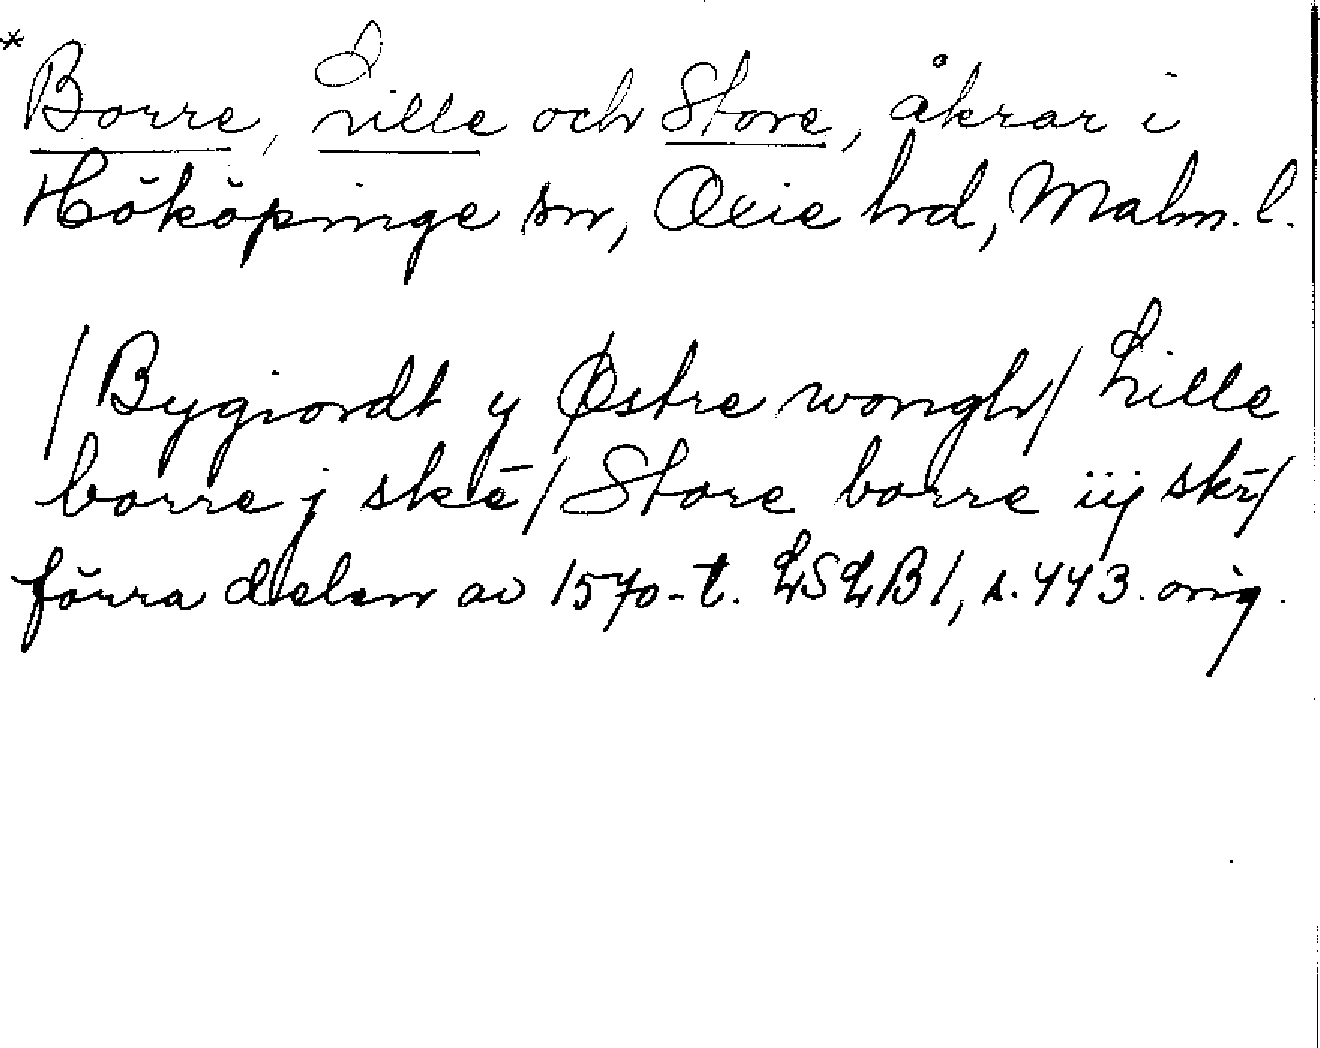 * Borre, Lille och Store, åkrar i
Hököpinge sn, Oxie hd, Malm. l.
/Bygiordt y Østre wongh/ Lille
borre j skē/ Store borre iij skr̄/
förra delen av 1570-t. LSLB1, s. 443. orig.